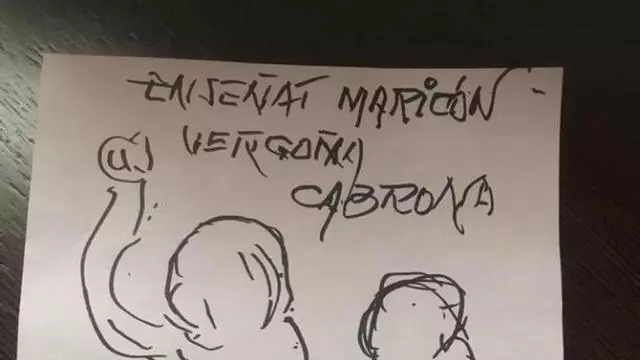 ENSEÑAT MARICÓN
VERGOÑA
CABRONA